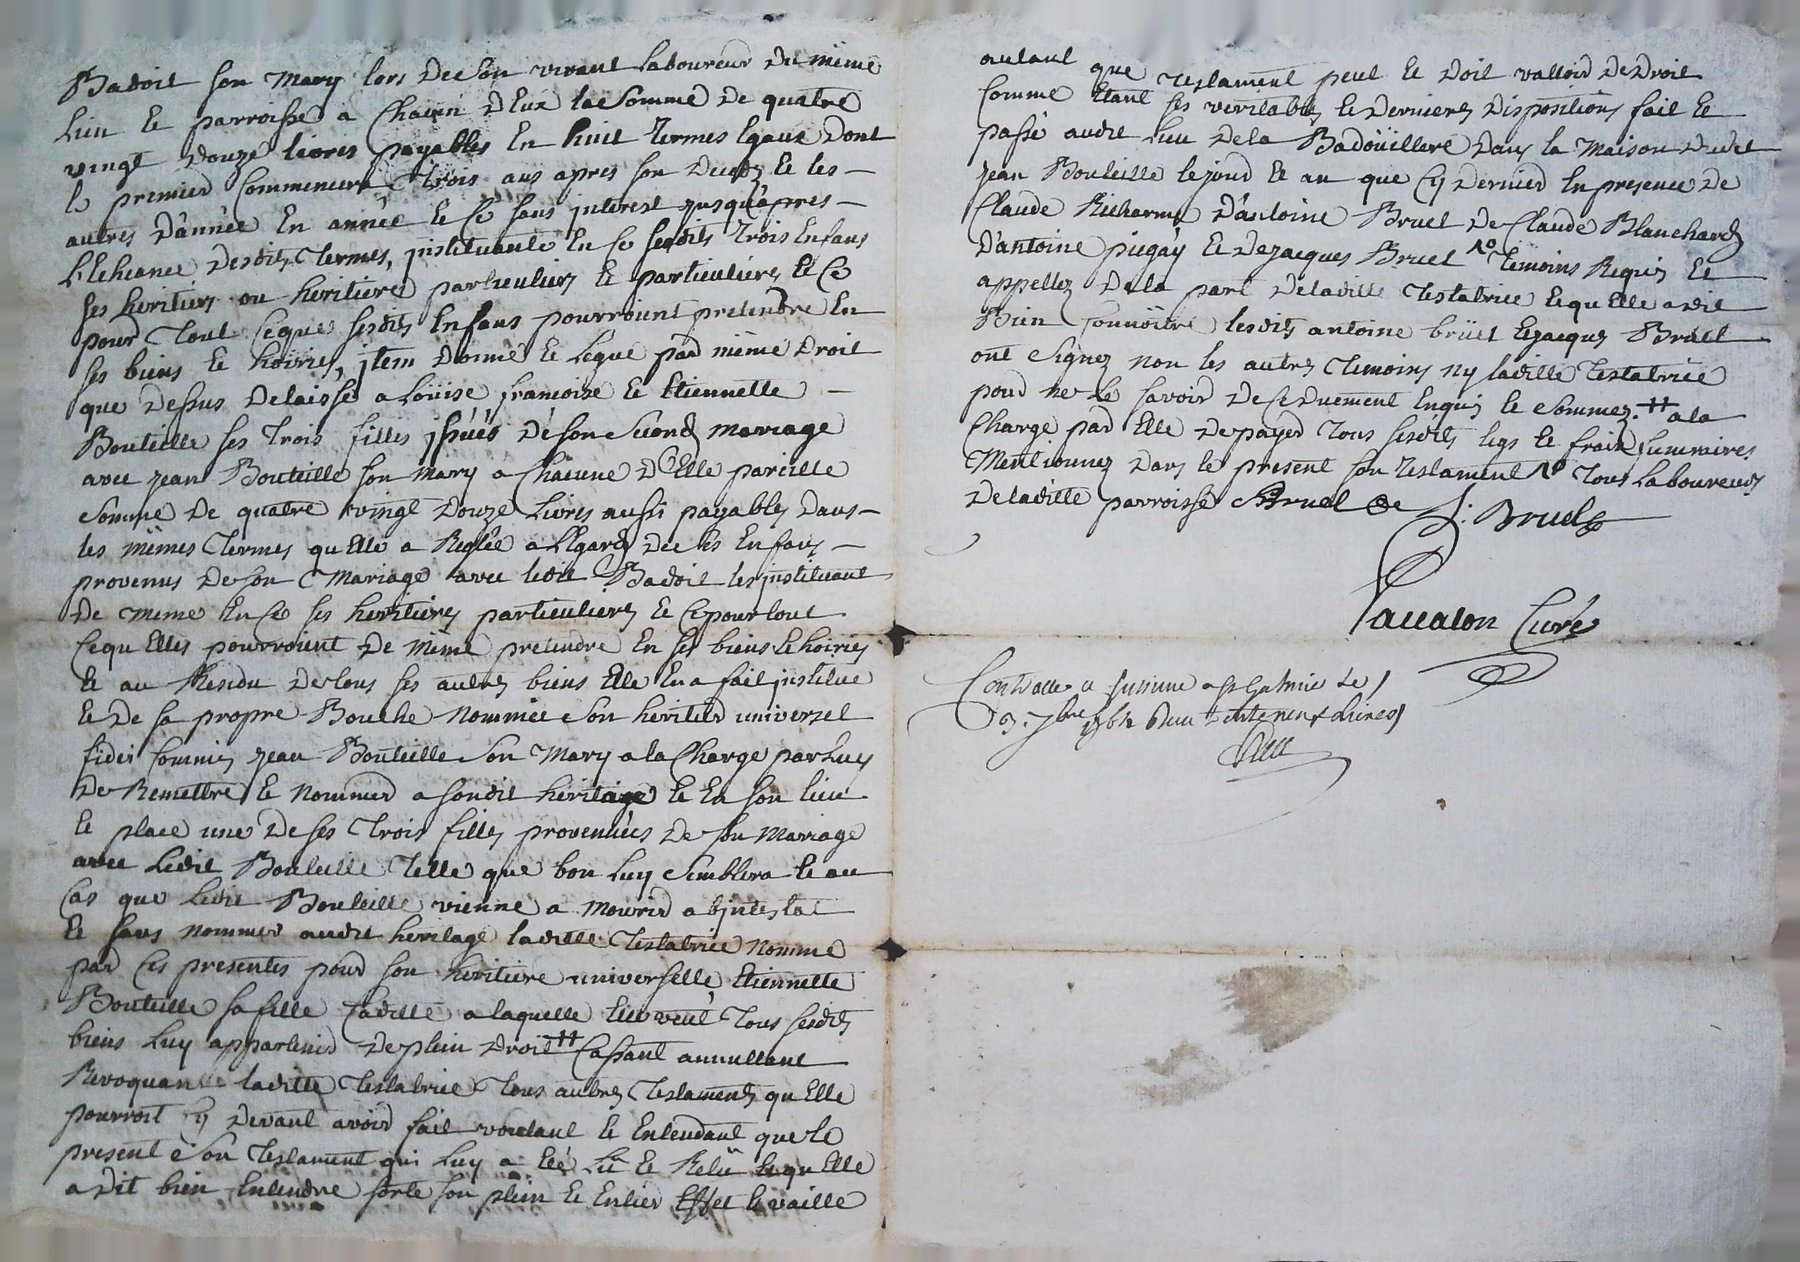 Badoil son Mary lors de son vivant laboureur du même
lieu et parroisse a Chacun d'Eux la somme de quatre
vingt douze livres payables En huit termes Egaux dont
le premier Commencera trois ans apres son deceds et les
autres d'année En année et ce sans interest jusqu'apres
L'Echeance desdits termes, instituante En ce sesdits trois Enfans
ses heritiers ou heritiere particuliers et particulieres et ce
pour tout ceque sesdits Enfans pourroient pretendre En
ses biens et hoiries, jtem donne et legue par même droit
que dessus delaissé a Loüise françoise et Etiennette
Bouteille ses trois filles jssües de son second mariage
avec jean Bouteille son mary a Chacune d'Elle pareille
somme de quatre vingt douze Livres aussi payables dans
les mêmes termes qu'Elle a Reglée a L'Egard de ses Enfans
provenus de son Mariage avec ledit Badoil les jnstituant
de meme En ce ses heritieres particulieres et ce pour tout
ce qu'Elles pourroient de même pretendre En ses biens et hoiries
Et au Residu de tous ses autres biens Elle En a fait jnstitué
Et de sa propre Bouche nommée son heritier universel
fidei Commis jean Bouteille son Mary a la Charge par Luy
de Remettre et nommer a sondit heritage et En son lieu
et place une de ses trois filles provenües de son mariage
avec Ledit Bouteille telle que bon Luy semblera et au
Cas que Ledit Bouteille vienne a mourir abjntestat
Et sans nommer audit heritage laditte testatrice nomme
par Ces presentes pour son heritiere universelle Etiennette
Bouteille sa fille laditte a laquelle Elle veut tous sesdits
biens Luy appartenir de plein droit ++ Cassant annullant
Revoquante laditte testatrice tous autres testaments qu'Elle
pourroit cy devant avoir fait voulant et Entendant que le
present son testament qui Luy a été Lû et Relû et qu'Elle
a dit bien Entendre sorte son plein et Entier Effet et vaille
autant que testament peut et doit valloir de droit
Comme Etant ses veritables et dernieres dispositions fait et
passé audit lieu de la Badoüillere dans la Maison dudit
jean Bouteille le jour et an que cy dernier En presence de
Claude Richarme d'antoine Bruel de Claude Blanchard
d'antoine pugay et de jacques Bruel No temoins Requis et
appellez de la part de laditte testatrice et qu'Elle a dit
Bien Connoître lesdits antoine brüel et jacques Bruel
ont signez non les autres temoins ny laditte testatrice
pour ne le savoir de ce duement Enquis et sommez. ++ a la
Charge par Elle de payer tous sesdits legs et fraix funeraires
Mentionnez dans le present son testament No tous laboureurs
de laditte parroisse Bruel J. Bruel
Lavalon Curé
Controllé a St Galmier Le
3. 7bre